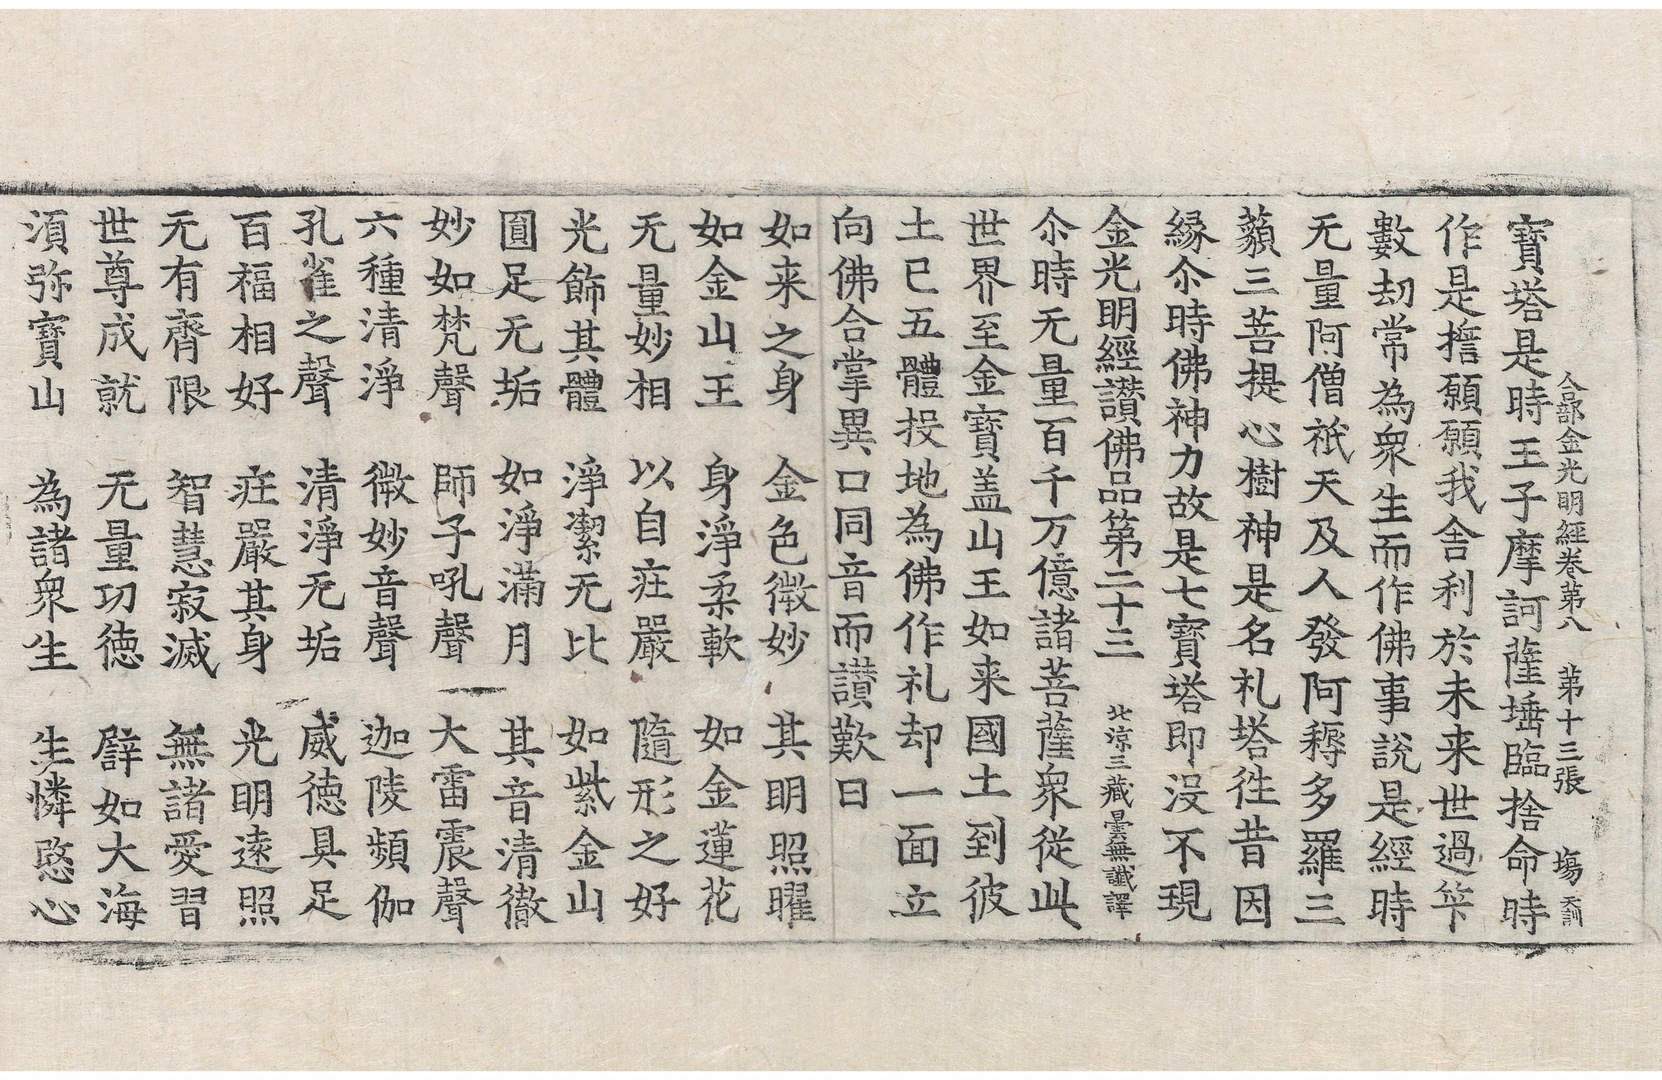 合部金光明經卷第八　第十三張　塲　禿訓
寶塔是時王子摩訶薩埵臨捨命時
作是擔願願我舍利於未来世過筭
數劫常為衆生而作佛事說是經時
无量阿僧祇天及人發阿耨多羅三
藐三菩提心樹神是名礼塔徃昔因
縁尒時佛神力故是七寶塔即没不現
金光明經讃佛品第二十三　北涼三藏曇無讖譯
尒時无量百千万億諸菩薩衆從此
世界至金寶盖山王如来國土到彼
土已五體投地為佛作礼却一面立
向佛合掌異口同音而讃歎曰
如来之身　金色微妙　其明照曜
如金山王　身淨柔軟　如金蓮花
无量妙相　以自莊嚴　隨形之好
光飾其體　淨潔无比　如紫金山
圓足无垢　如淨滿月　其音清徹
妙如梵聲　師子吼聲　大雷震聲
六種清淨　微妙音聲　迦陵頻伽
孔雀之聲　清淨无垢　威德具足
百福相好　莊嚴其身　光明遠照
无有齊限　智慧寂滅　無諸愛習
世尊成就　无量功德　譬如大海
湏弥寶山　為諸衆生　生憐愍心